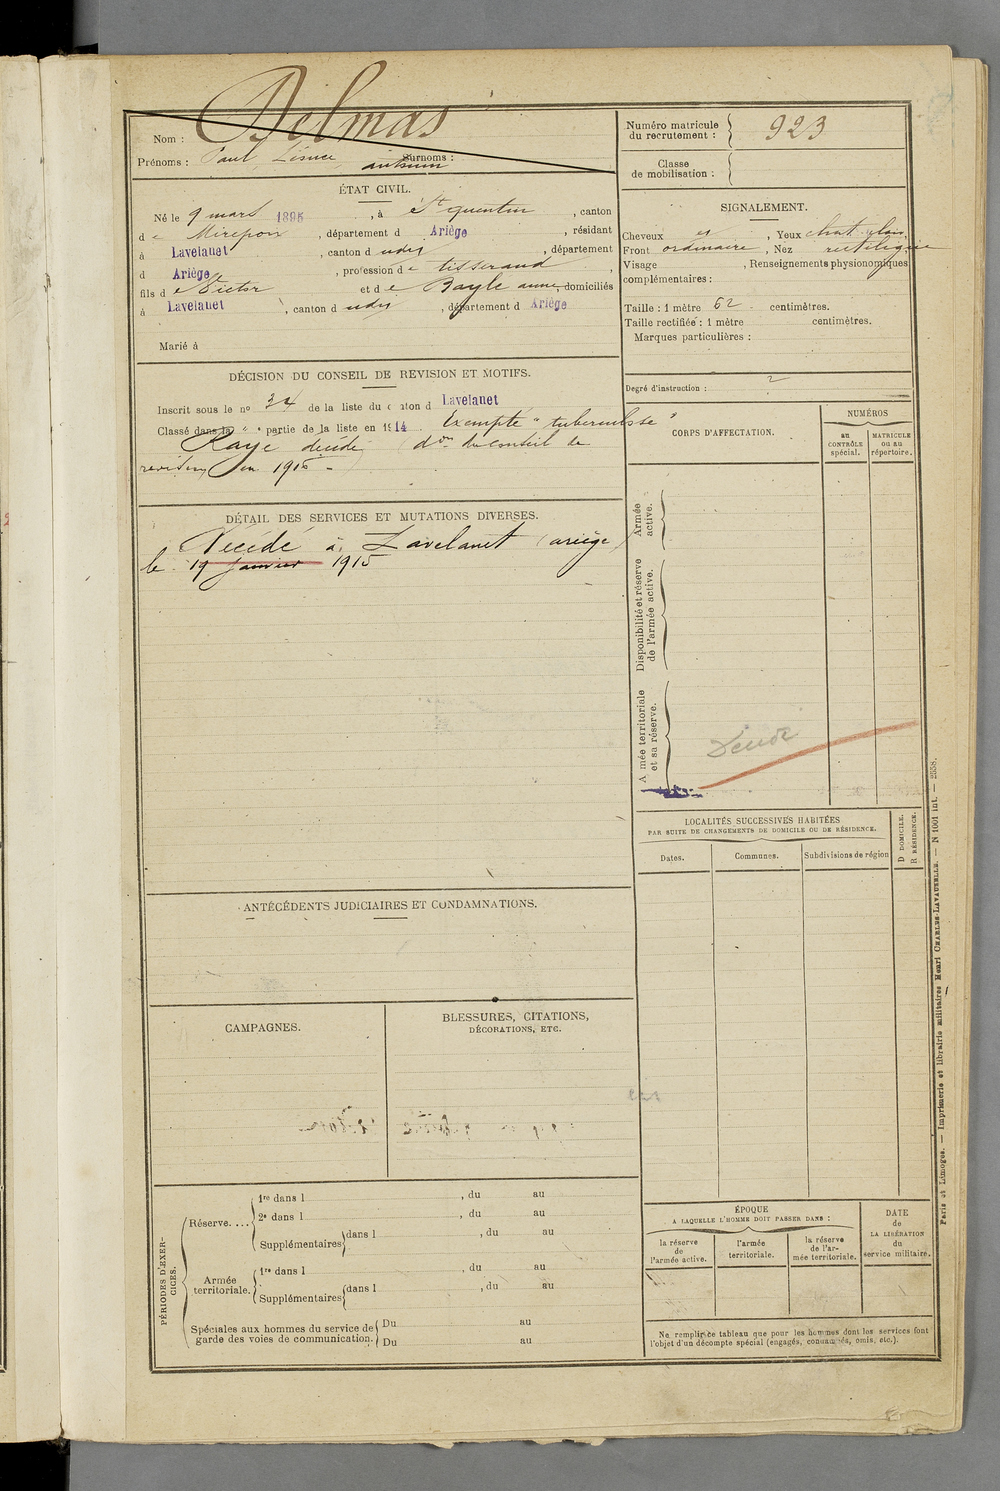 Delmas
Nom :
Prénoms : Paul Surnoms :
ÉTAT CIVIL.
Né le 9 mars 1895, à St quentin, canton
de Mirepoix, département d Ariège, résidant
à Lavelanet, canton d udit, département
d Ariège, profession de tisserand,
fils de Victor et de Bayle anne, domiciliés
à Lavelanet, canton d udit, département d Ariège
Marié à
DÉCISION DU CONSEIL DE REVISION ET MOTIFS.
Inscrit sous le no 34 de la liste du canton d Lavelanet
Classé dans la " " partie de la liste en 1914. Exempté "tuberculose"
Raye décédé don du conseil de
revision en 1915 -
DÉTAIL DES SERVICES ET MUTATIONS DIVERSES.
Décédé à Lavelanet (ariège)
le 19 janvier 1915
ANTÉCÉDENTS JUDICIAIRES ET CONDAMNATIONS.
CAMPAGNES.
BLESSURES, CITATIONS,
DÉCORATIONS, ETC.
PÉRIODES D'EXER-
CICES.
Réserve....
1re dans l , du au
2e dans l , du au
Supplémentaires dans l , du au
Armée
territoriale.
1re dans l , du au
Supplémentaires dans l , du au
Spéciales aux hommes du service de
garde des voies de communication.
Du au
Du au
Numéro matricule
du recrutement : 923
Classe
de mobilisation :
SIGNALEMENT.
Cheveux , Yeux
Front ordinaire, Nez rectiligne
Visage , Renseignements physionomiques
complémentaires :
Taille : 1 mètre 62 centimètres.
Taille rectifiée : 1 mètre centimètres.
Marques particulières :
Degré d'instruction : 2
CORPS D'AFFECTATION.
NUMÉROS
au
CONTRÔLE
spécial.
MATRICULE
ou au
répertoire.
Armée
active.
Disponibilité et réserve
de l'armée active.
A mée territoriale
et sa réserve.
Décédé
LOCALITÉS SUCCESSIVES HABITÉES
PAR SUITE DE CHANGEMENTS DE DOMICILE OU DE RÉSIDENCE.
Dates.
Communes.
Subdivisions de région
D DOMICILE.
R RÉSIDENCE.
ÉPOQUE
A LAQUELLE L'HOMME DOIT PASSER DANS :
la réserve
de
l'armée active.
l'armée
territoriale.
la réserve
de l'ar-
mée territoriale.
DATE
de
LA LIBÉRATION
du
service militaire.
Ne remplir ce tableau que pour les hommes dont les services font
l'objet d'un décompte spécial (engagés, condamnés, omis, etc.).
Paris et Limoges. — Imprimerie et librairie militaires Henri CHARLES-LAVAUZELLE. — N 1001 int. — 2358.